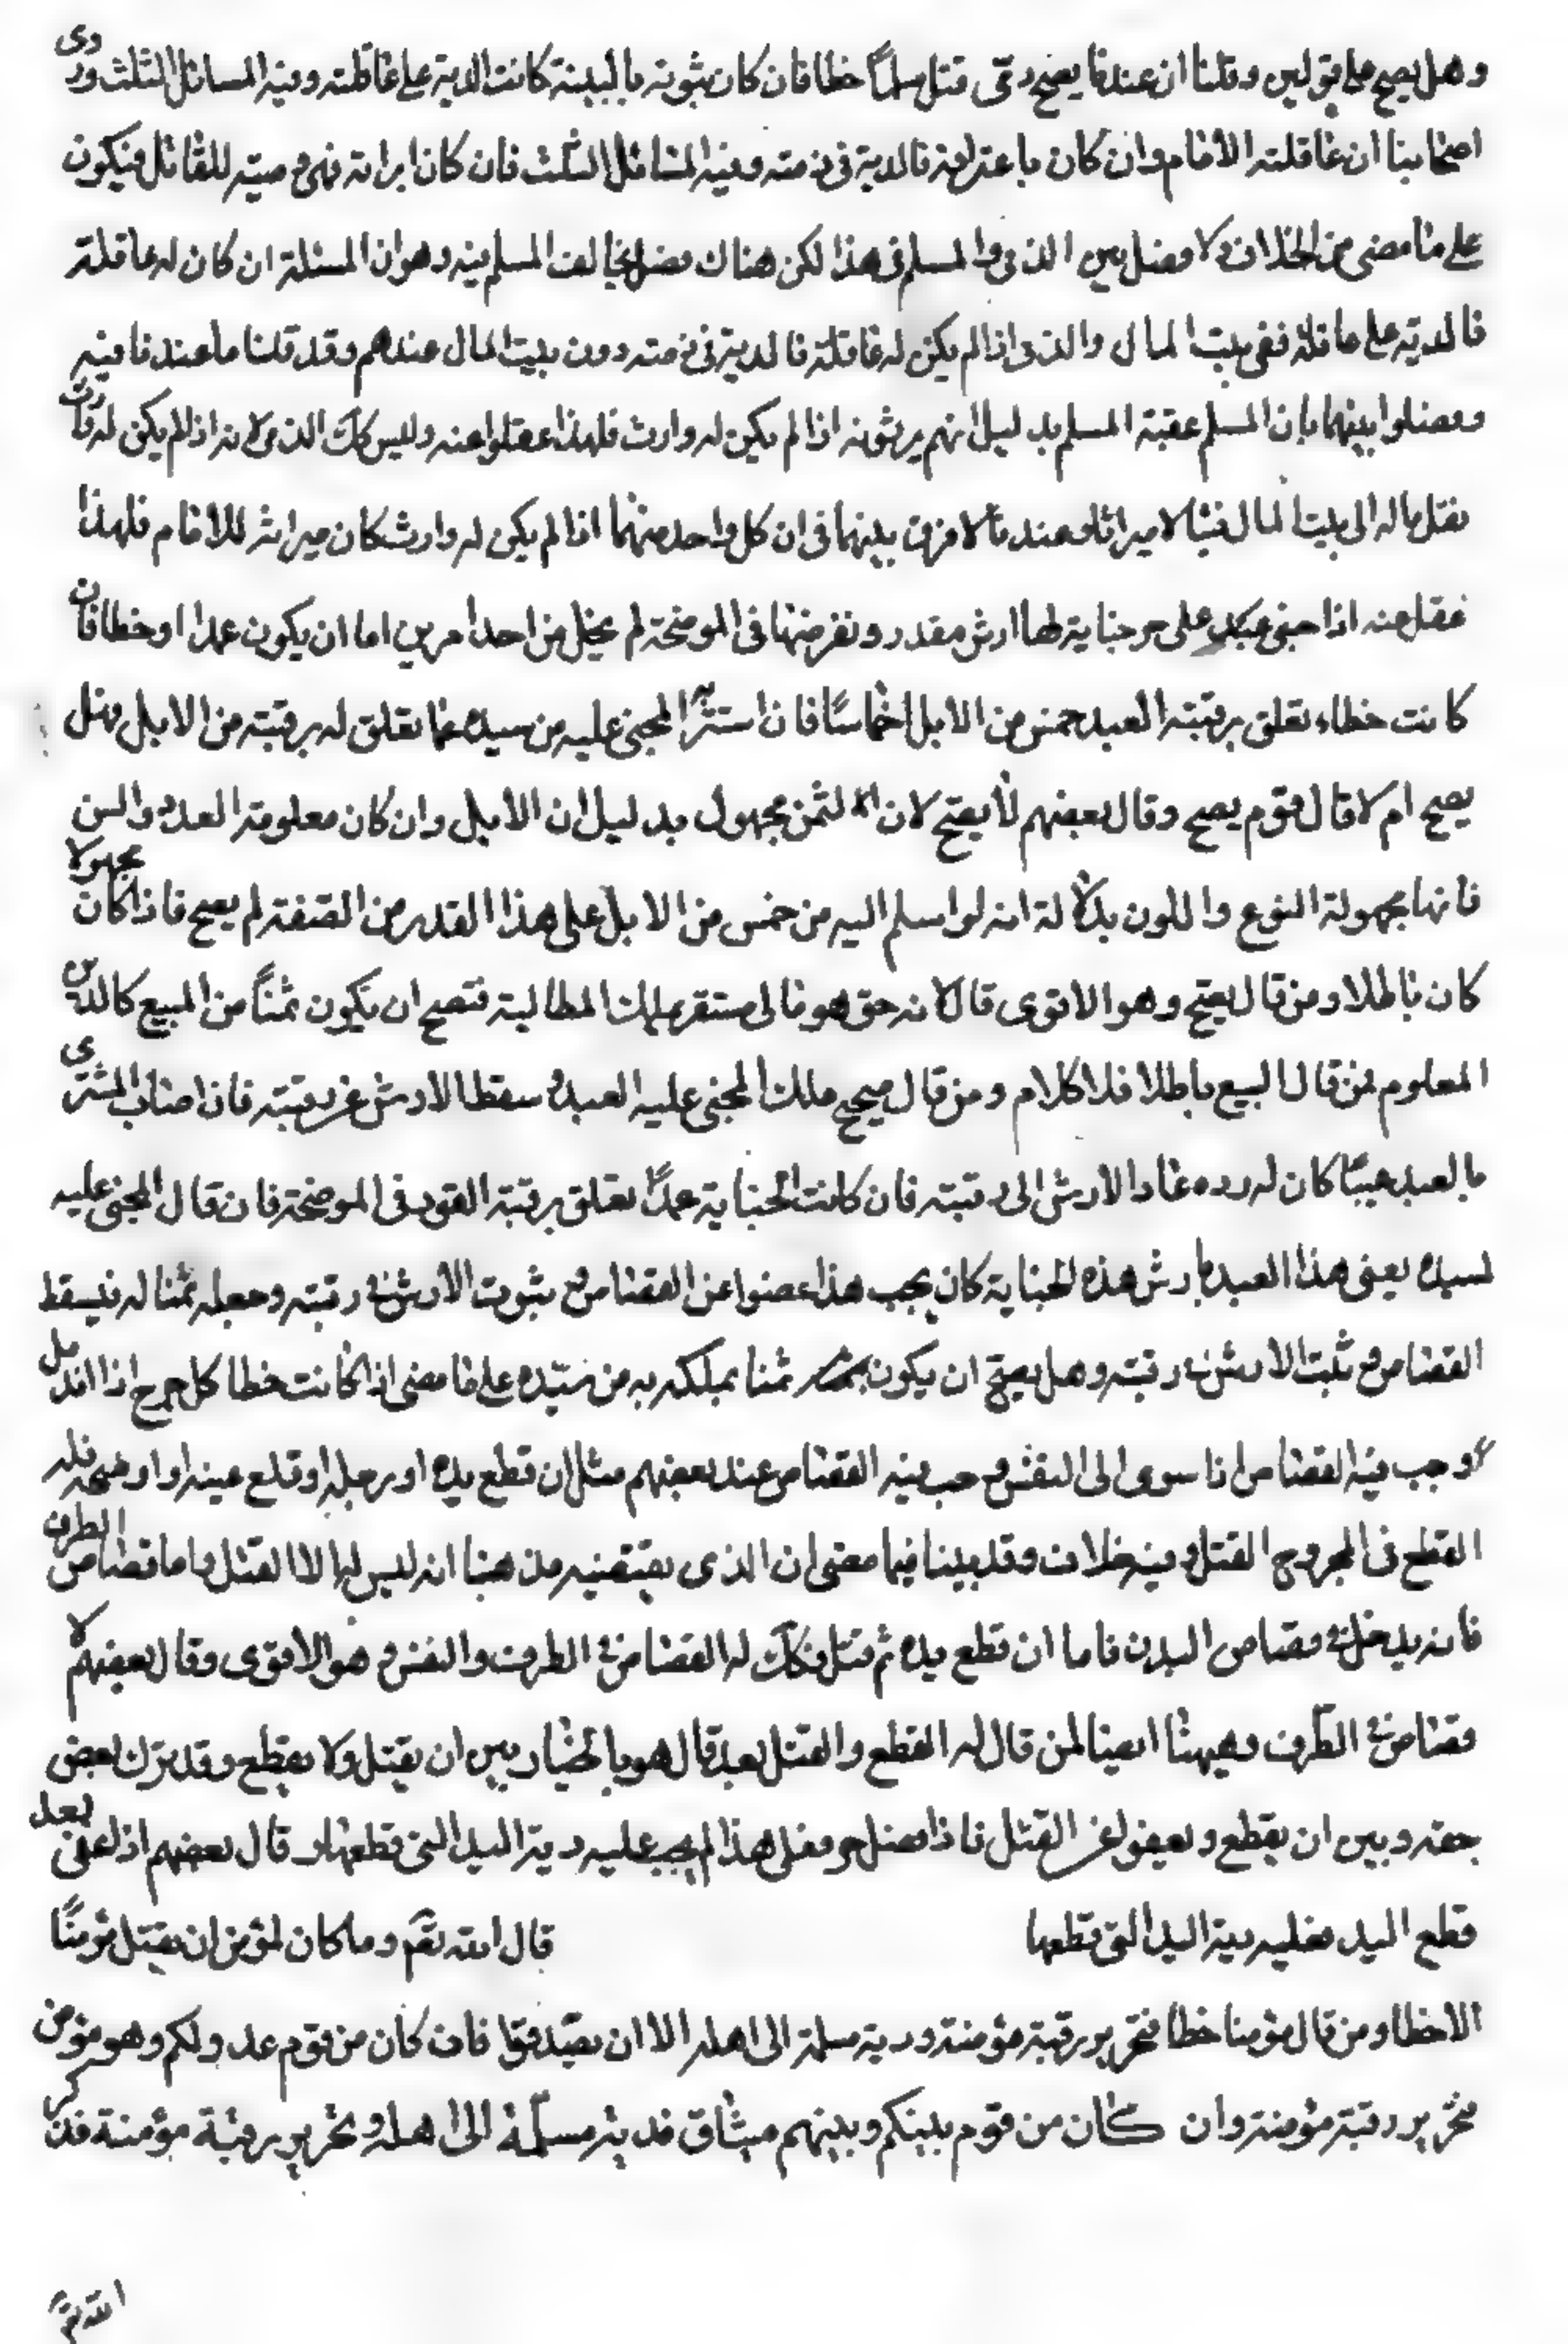 وهل يصح على قولين وقلنا ان عندنا يصح ذمى قتل مسلماً خطا فان كان ثبوته بالبينة كانت الدية على عاقلته وفيه المسائل الثلث وروى
اصحابنا ان عاقلته الامام وان كان باعترافه فالدية فى ذمته وفيه المسائل الثلث فان كان ابراته فهى وصيته للقاتل فيكون
على ما مضى من الخلاف ولا فصل بين الذمى والمسلم فى هذا لكن هناك فصل يخالف المسلم فيه وهو ان المسئلة ان كان له عاقلة
فالدية على عاقلة ففى بيت المال والذمى اذا لم يكن له عاقلة فالدية فى ذمته دون بيت المال عندهم وقد قلنا ما عندنا فيه
وفصلوا بينهما بان المسلم عقبة المسلم بدليل انهم يرثونه اذا لم يكن له وارث فلهذا عقلوا عنه وليس كك الذمى لانه اذا لم يكن له وارث
نقل ماله الى بيت المال فيئا لا ميراثا وعندنا لا فرق بينهما فى ان كل واحد منهما اذا لم يكن له وارث كان ميراثه للامام فلهذا
عقل عنه اذا جنى عبد على حر جناية لها ارش مقدر ونفرضها فى الموضحة لم يخل من احد امرين اما ان يكون عمدا او خطا فان
كانت خطاء تعلق برقبته العبد خمس من الابل اخماسًا فان استرا المجنى عليه من سيده بما تعلق له برقبته من الابل فهل
يصح ام لا قال قوم يصح وقال بعضهم لا يصح لان الثمن مجهول بدليل ان الابل وان كان معلومة العدد والسن
فانها مجهولة النوع واللون بدلالة انه لو اسلم اليه من خمس من الابل على هذا القدر من الصفة لم يصح فاذا كان مجهولا
كان باطلا ومن قال يصح وهو الاقوى قال لانه حق هو مالى مستقر يملك المطالبة فتصح ان يكون ثمناً من المبيع كالدين
المعلوم فمن قال البيع باطلا فلا كلام ومن قال صحيح ملك المجنى عليه العبد وسقط الارش عن رقبته فان اصاب المشترى
بالعبد عيبًا كان له رده عاد الارش الى رقبته فان كانت الجناية عمدًا تعلق برقبة القود فى الموضحة فان قال المجنى عليه
لسيده بعنى هذا العبد بارش هذه الجناية كان يجب هذا عفوا عن القصاص وثبوت الارش فى رقبته وجعله ثمنا له فيسقط
القصاص وثبت الارش فى رقبته وهل يصح ان يكون ثمنا يملكه به من سيده على ما مضى اذا كانت خطا كل جرح اذا اندمل
وجب فيه القصاص اذا سرى الى النفس وجب فيه القصاص عند بعضهم مثل ان قطع يده او رجله او قلع عينه او اوضحه فله
القطع فى الجروح القتل وفيه خلاف وقد بينا فيما مضى ان الذى يقتضيه مذهبنا انه ليس له الا القتل واما قصاص الطرف
فانه يدخل فى قصاص البدن فاما ان قطع يده ثم قتل فكك له القصاص فى الطرف والنفس وهو الاقوى وقال بعضهم لا
قصاص فى الطرف وهيهنا ايضا لمن قال له القطع والقتل بعد قال هو بالخيار بين ان يقتل ولا يقطع وقد ترك بعض
حقه وبين ان يقطع ويعفو عن القتل فاذا فعل هذا لم يجب عليه دية اليد التى قطعها وقال بعضهم اذا عفى بعد
قطع اليد فعليه دية اليد التى قطعها قال الله تعم وما كان لمؤمن ان يقتل مؤمنًا
الا خطا ومن قال مؤمنا خطا فتحرير رقبة مؤمنة ودية مسلمة الى اهله الا ان يصّدقوا فان كان من قوم عدو لكم وهو مؤمن
فتحرير رقبة مؤمنة وان كان من قوم بينكم وبينهم ميثاق فدية مسلّمة الى اهله وتحرير رقبة مؤمنة فذكر
الله تم